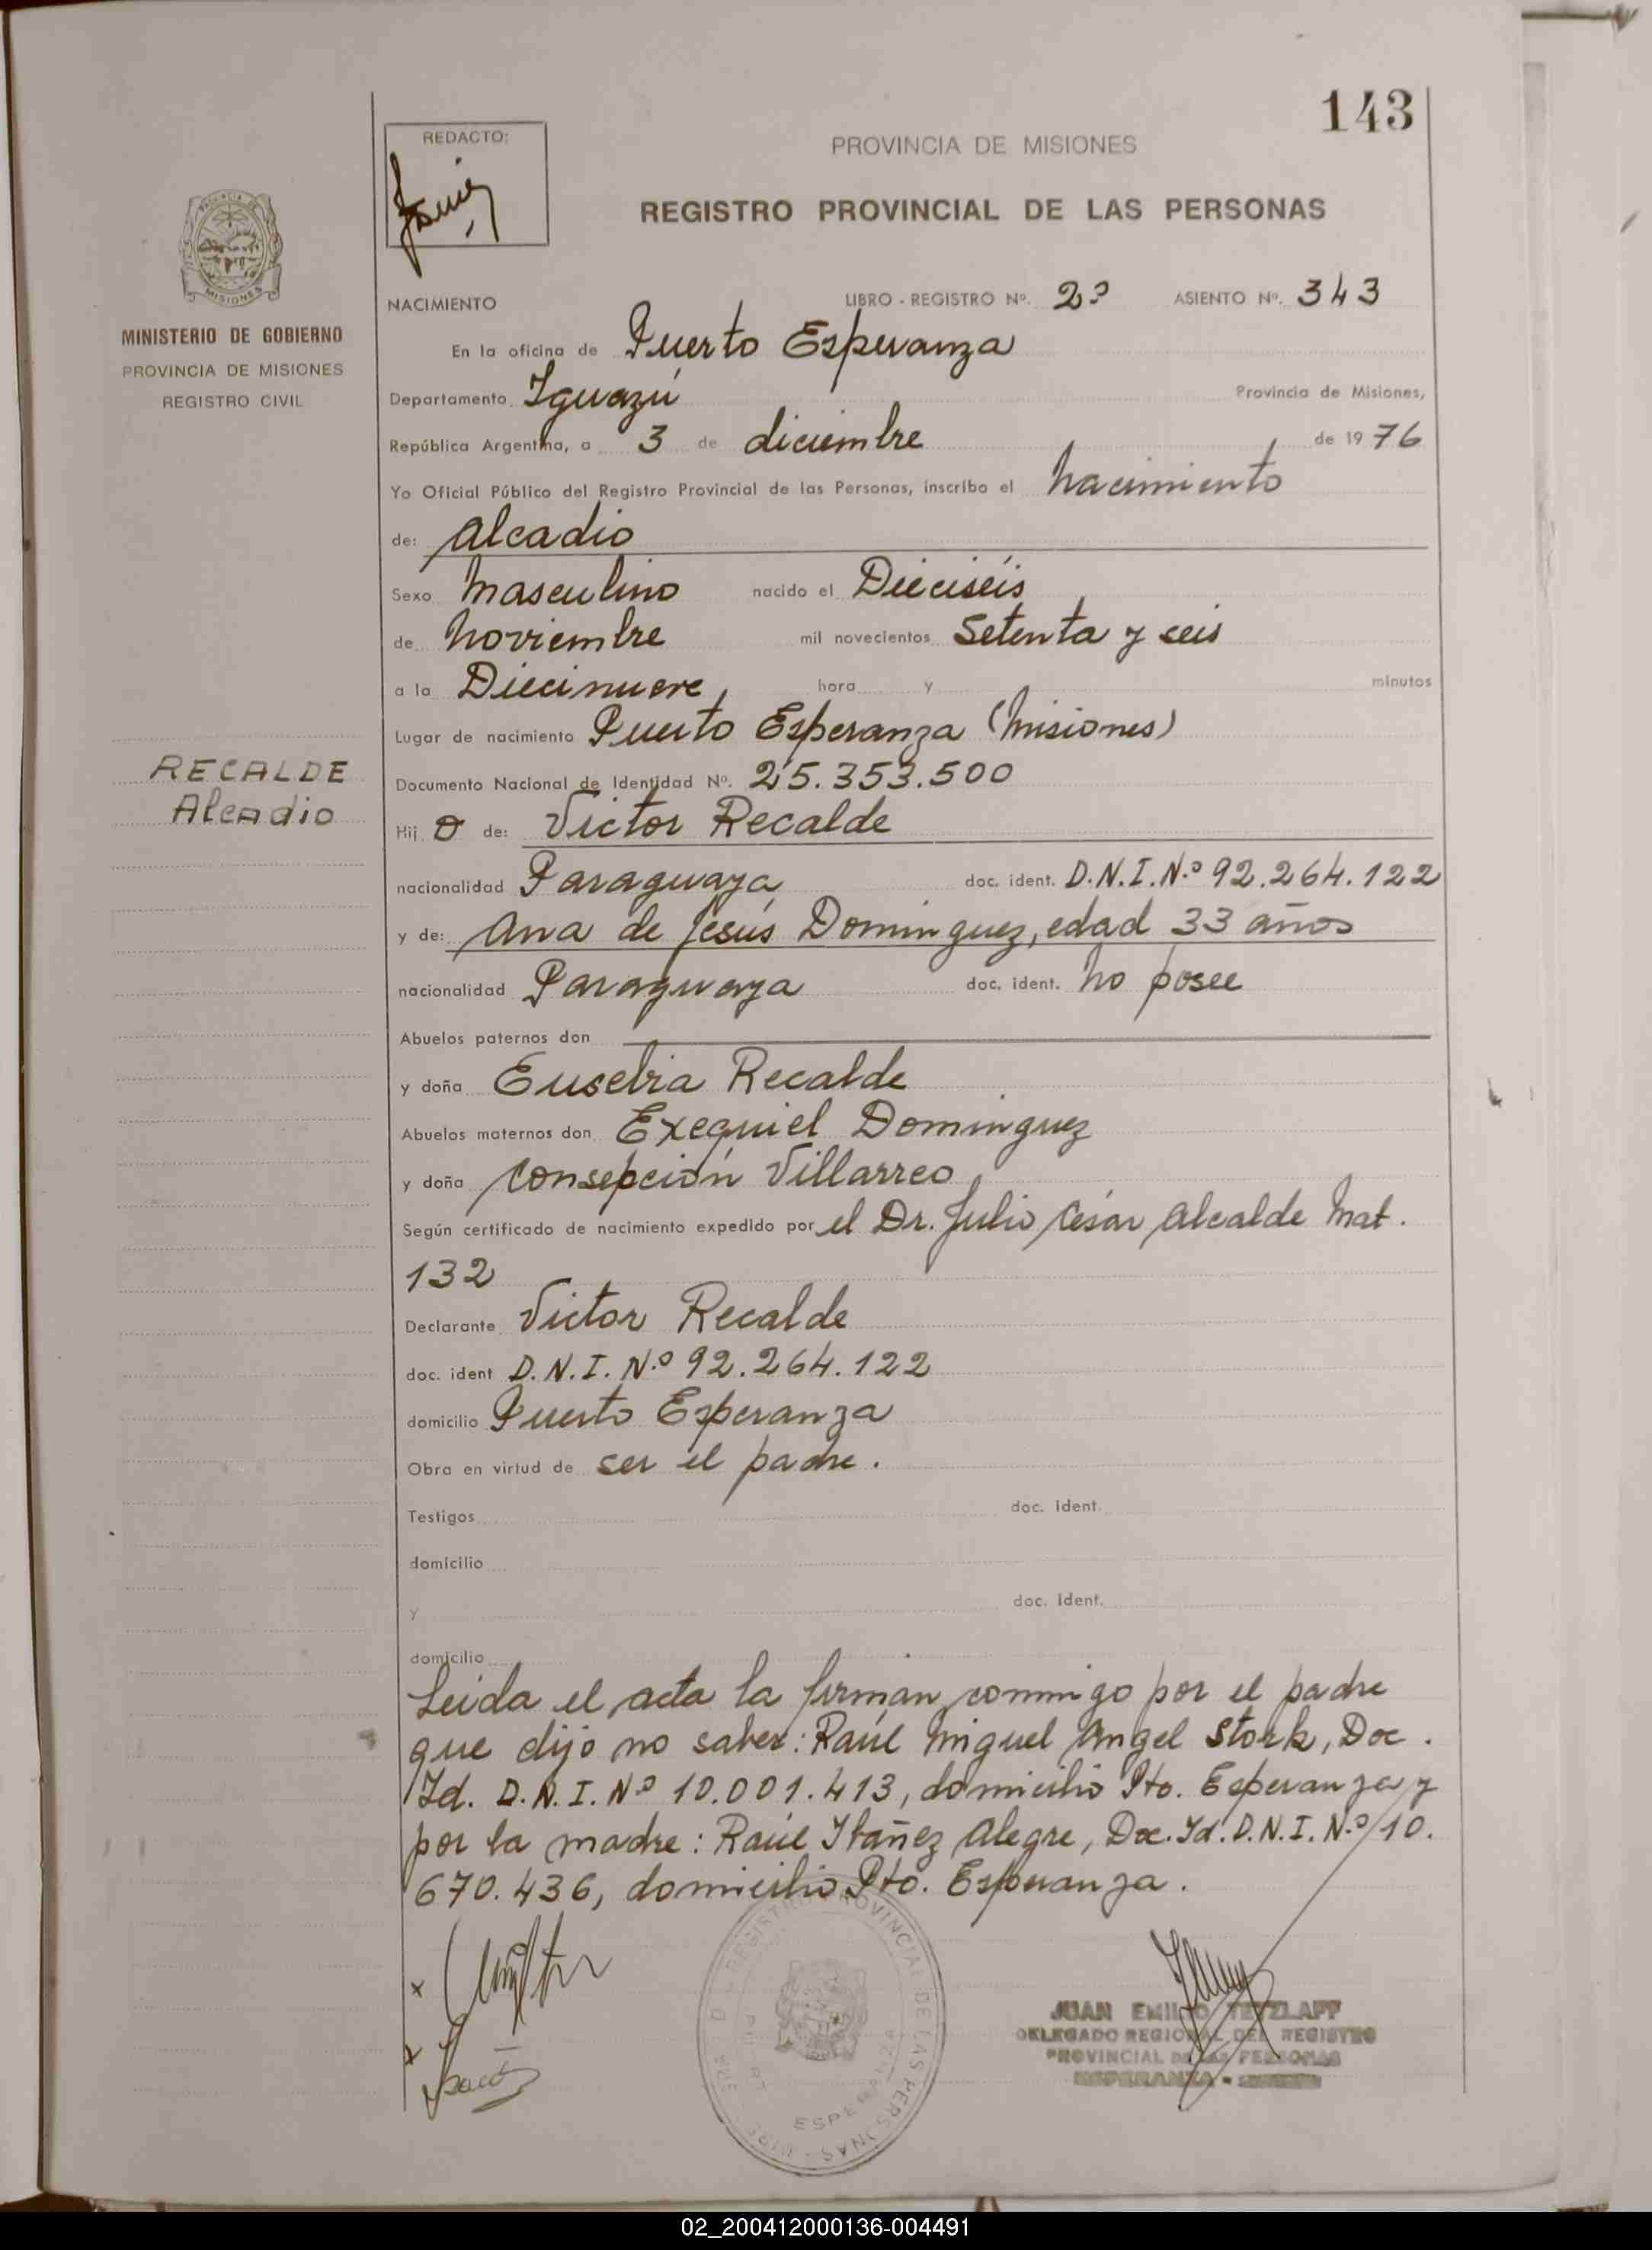 143
REDACTO:
PROVINCIA DE MISIONES
REGISTRO PROVINCIAL DE LAS PERSONAS
MISIONES
MINISTERIO DE GOBIERNO
PROVINCIA DE MISIONES
REGISTRO CIVIL
NACIMIENTO LIBRO - REGISTRO Nº. 2º ASIENTO Nº. 343
En la oficina de Puerto Esperanza
Departamento Iguazú Provincia de Misiones,
República Argentina, a 3 de diciembre de 1976
Yo Oficial Público del Registro Provincial de las Personas, inscribo el nacimiento
de: Alcadio
Sexo Masculino nacido el Dieciséis
de Noviembre mil novecientos Setenta y seis
a la Diecinueve, hora y minutos
Lugar de nacimiento Puerto Esperanza (Misiones)
RECALDE
Alcadio
Documento Nacional de Identidad Nº. 25.353.500
Hij o de: Victor Recalde
nacionalidad Paraguaya doc. ident. D.N.I.N.º 92.264.122
y de: Ana de Jesús Dominguez, edad 33 años
nacionalidad Paraguaya doc. ident. No posee
Abuelos paternos don
y doña Eusebia Recalde
Abuelos maternos don Exequiel Dominguez
y doña Consepción Villarreo
Según certificado de nacimiento expedido por el Dr. Julio César Alcalde Mat.
132
Declarante Victor Recalde
doc. ident D.N.I. N.º 92.264.122
domicilio Puerto Esperanza
Obra en virtud de ser el padre.
Testigos doc. ident.
domicilio
y doc. ident.
domicilio
Leida el acta la firman conmigo por el padre
que dijo no saber: Raúl Miguel Angel Stork, Doc.
Id. D.N.I. Nº 10.001.413, domicilio Pto. Esperanza y
por la madre: Raúl Ibañez Alegre, Doc. Id. D.N.I. N.º 10.
670.436, domicilio Pto. Esperanza.
REGISTRO PROVINCIAL DE LAS PERSONAS
ESPERANZA
JUAN EMILIO TETZLAFF
DELEGADO REGIONAL DEL REGISTRO
PROVINCIAL DE LAS PERSONAS
ESPERANZA -
02_200412000136-004491